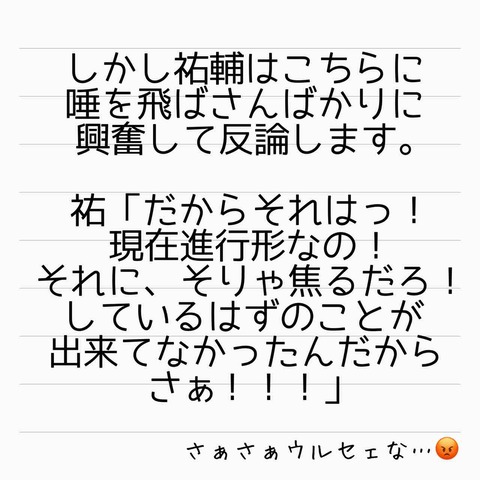 しかし祐輔はこちらに
唾を飛ばさんばかりに
興奮して反論します。
祐「だからそれはっ！
現在進行形なの！
それに、そりゃ焦るだろ！
しているはずのことが
出来てなかったんだから
さぁ！！！」
さぁさぁウルセェな…😡